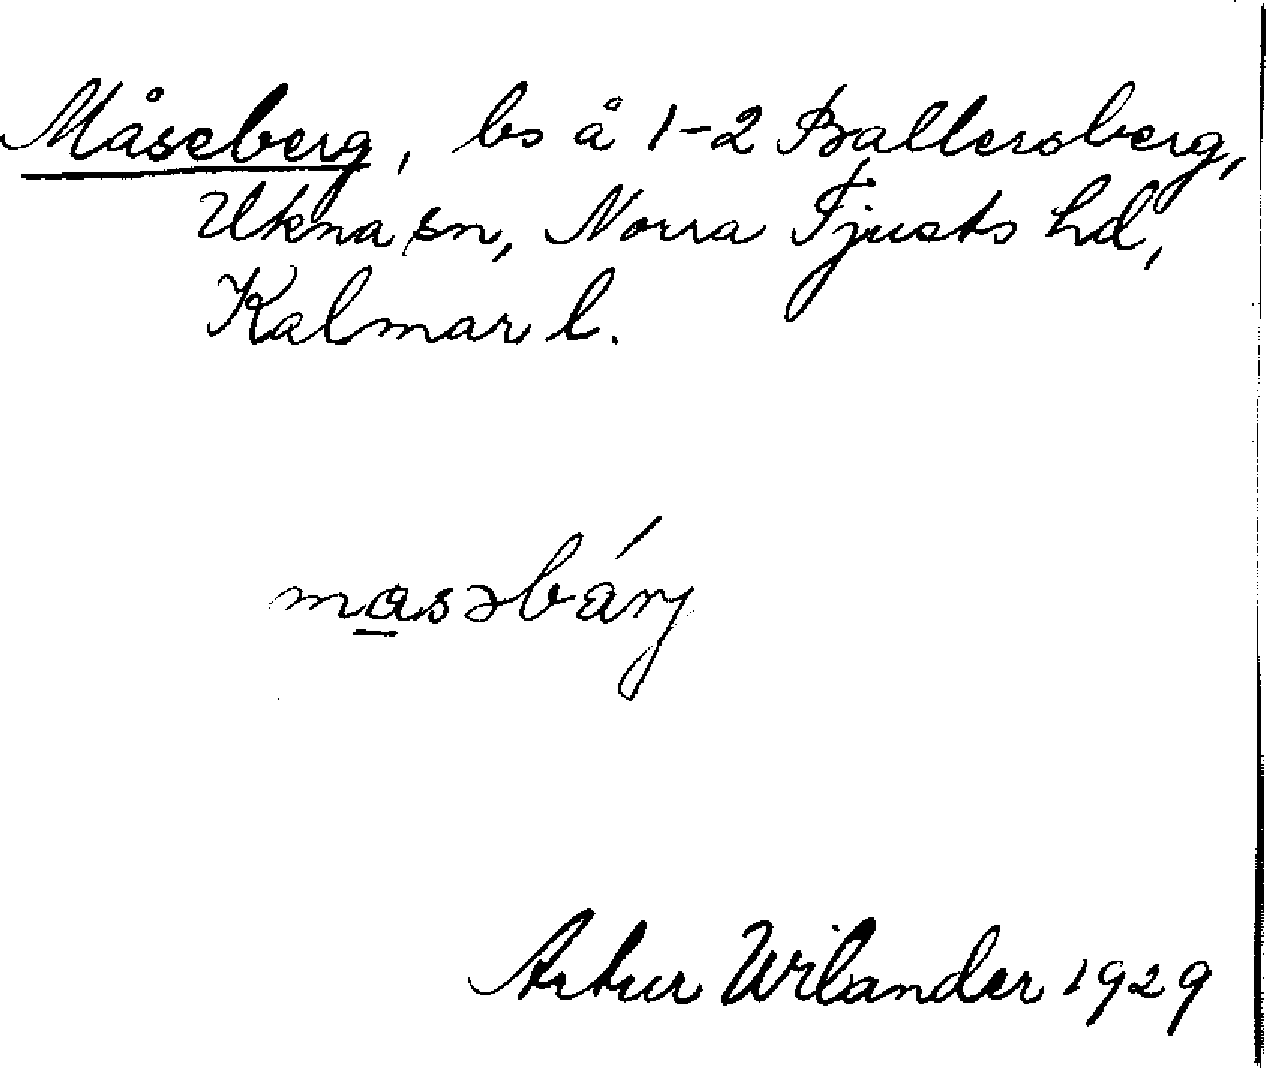 Måseberg, bs å 1-2 Ballersberg,
Ukna sn, Norra Tjusts hd,
Kalmar l.
ma̲səbárj
Artur Wilander 1929